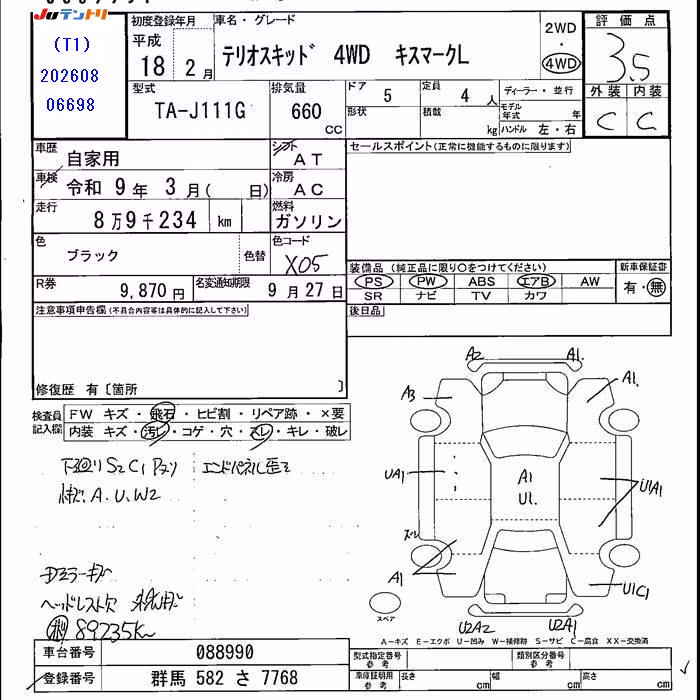 Juテントリ
(T1)
202608
06698
初度登録年月
平成
18 2月
車名・グレード
テリオスキッド 4WD キスマークL
2WD
・
4WD
評価点
3.5
外装 内装
C C
型式
TA-J111G
排気量
660
CC
ドア
5
形状
定員
4 人
積載
kg
ディーラー・並行
モデル年式 年
ハンドル 左・右
車歴
自家用
シフト
AT
車検
令和 9年 3月( 日)
冷房
AC
走行
8万9千234 km
燃料
ガソリン
色
ブラック
色替
色コード
X05
R券
9,870円
名変通知期限
9月27日
セールスポイント(正常に機能するものに限ります)
装備品 (純正品に限り○をつけてください)
PS PW ABS エアB AW
SR ナビ TV カワ
新車保証書
有・無
後日品
注意事項申告欄(不具合内容は具体的に記入して下さい)
修復歴 有〔箇所 〕
検査員記入欄
FW キズ・飛石・ヒビ割・リペア跡・×要
内装 キズ・汚レ・コゲ・穴・スレ・キレ・破レ
下廻り S2 C1 P2リ
エンドパネル歪2
A.U.W2
ヘッドレスト欠
89235K
A2 A1.
A3 A1.
UA1
A1
U1.
U1A1
ズレ
A1
U1C1
U2A2 U2A1
スペア
A-キズ E-エクボ U-凹み W-補修跡 S-サビ C-腐食 XX-交換済
車台番号 088990
登録番号 群馬 582 さ 7768
型式指定番号 参考
類別区分番号 参考
車庫証明用 参考
長さ cm
幅 cm
高さ cm